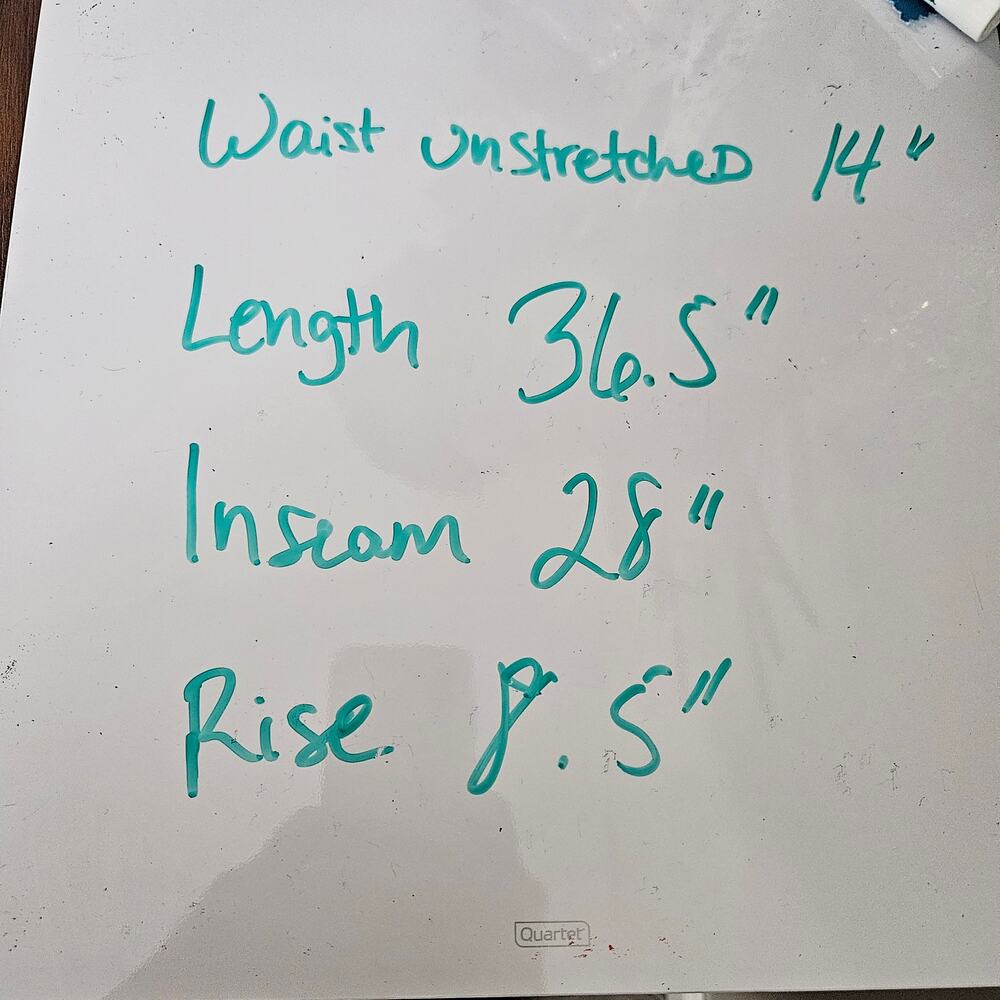 Waist unstretched 14"
Length 36.5"
Inseam 28"
Rise 8.5"
Quartet